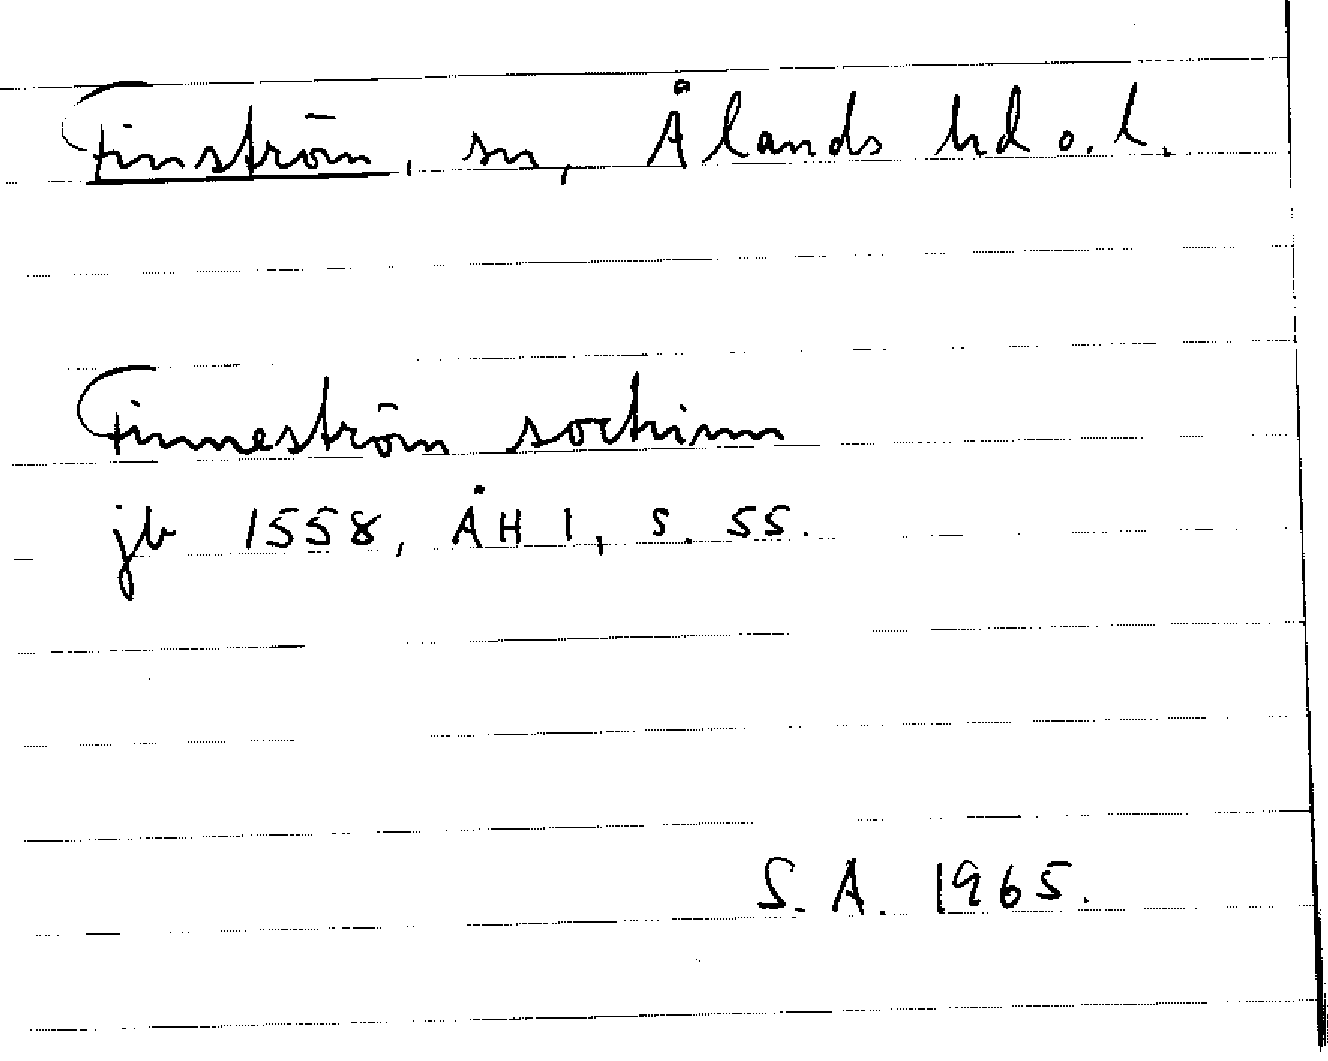 Finström, sn, Ålands hd o. l.
Finneström sochinn
jb 1558, ÅH 1, s. 55.
S. A. 1965.